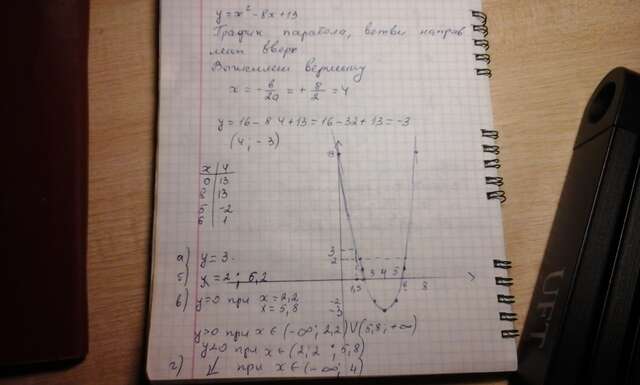 y=x²-8x+13
График парабола, ветви направ
лены вверх
Вычислим вершину
x = -b/2a = +8/2 = 4
y=16-8·4+13=16-32+13=-3
(4; -3)
x | y
0 | 13
8 | 13
5 | -2
6 | 1
3
2
1,5 3 4 5 6 8
-2
-3
а) y=3
б) x=2; 6,2
в) y=0 при x=2,2
x=5,8
y>0 при x∈(-∞; 2,2)∪(5,8; +∞)
y<0 при x∈(2,2; 5,8)
г) ↓ при x∈(-∞; 4)
UFT